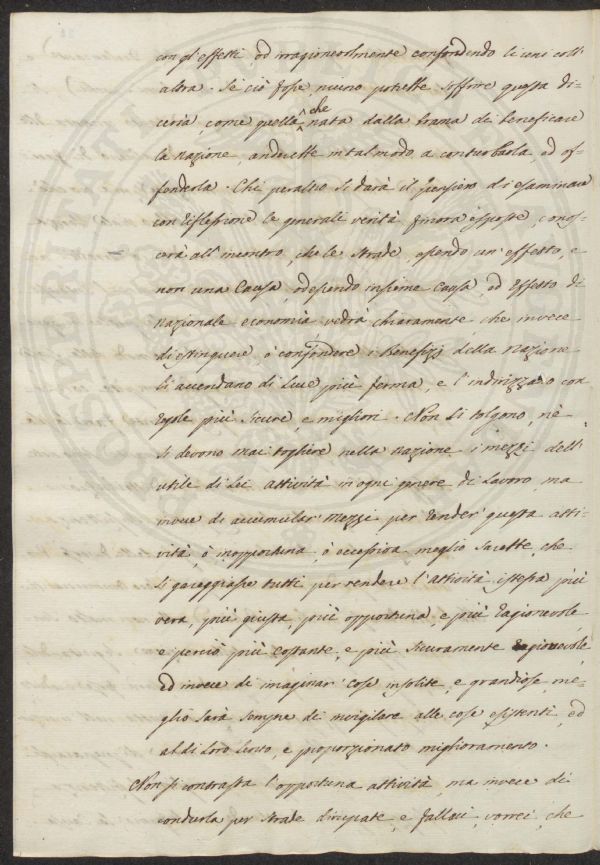 con gl'effetti, ed irragionevolmente confondendo li uni coll'
altra. Se ciò fosse, niuno potrebbe soffrire questa di-
ceria, come quella che nata dalla brama di beneficare
la nazione, anderebbe in tal modo a conturbarla, ed of-
fenderla. Chi peraltro si darà il pensiero di esaminare
con riflessione le generali verità finora esposte, conos-
cerà all'incontro, che le strade, essendo un'effetto, e
non una Causa, od essendo insieme Causa, ed Effetto di
nazionale economia, vedrà chiaramente, che invece
di estinguere, ò confondere i Benefizj della Nazione
li accendano di luce più ferma, e l'indirizzano con
regole più sicure, e migliori. Non si tolgono, nè
si devono mai togliere nella nazione i mezzi dell'
utile di Lei attività in ogni genere di lavoro, ma
invece di accumular mezzi per render questa atti-
vità, ò inopportuna, ò eccessiva, meglio sarebbe, che
si gareggiasse tutti per rendere l'attività istessa più
vera, più giusta, più opportuna, e più ragionevole,
e perciò più costante, e più sicuramente
ed invece di imaginar cose insolite, e grandiose, me-
glio sarà sempre di invigilare alle cose esistenti, ed
al di loro lento, e proporzionato miglioramento.
Non si contrasta l'opportuna attività, ma invece di
condurla per strade dirupate, e fallaci, vorrei, che